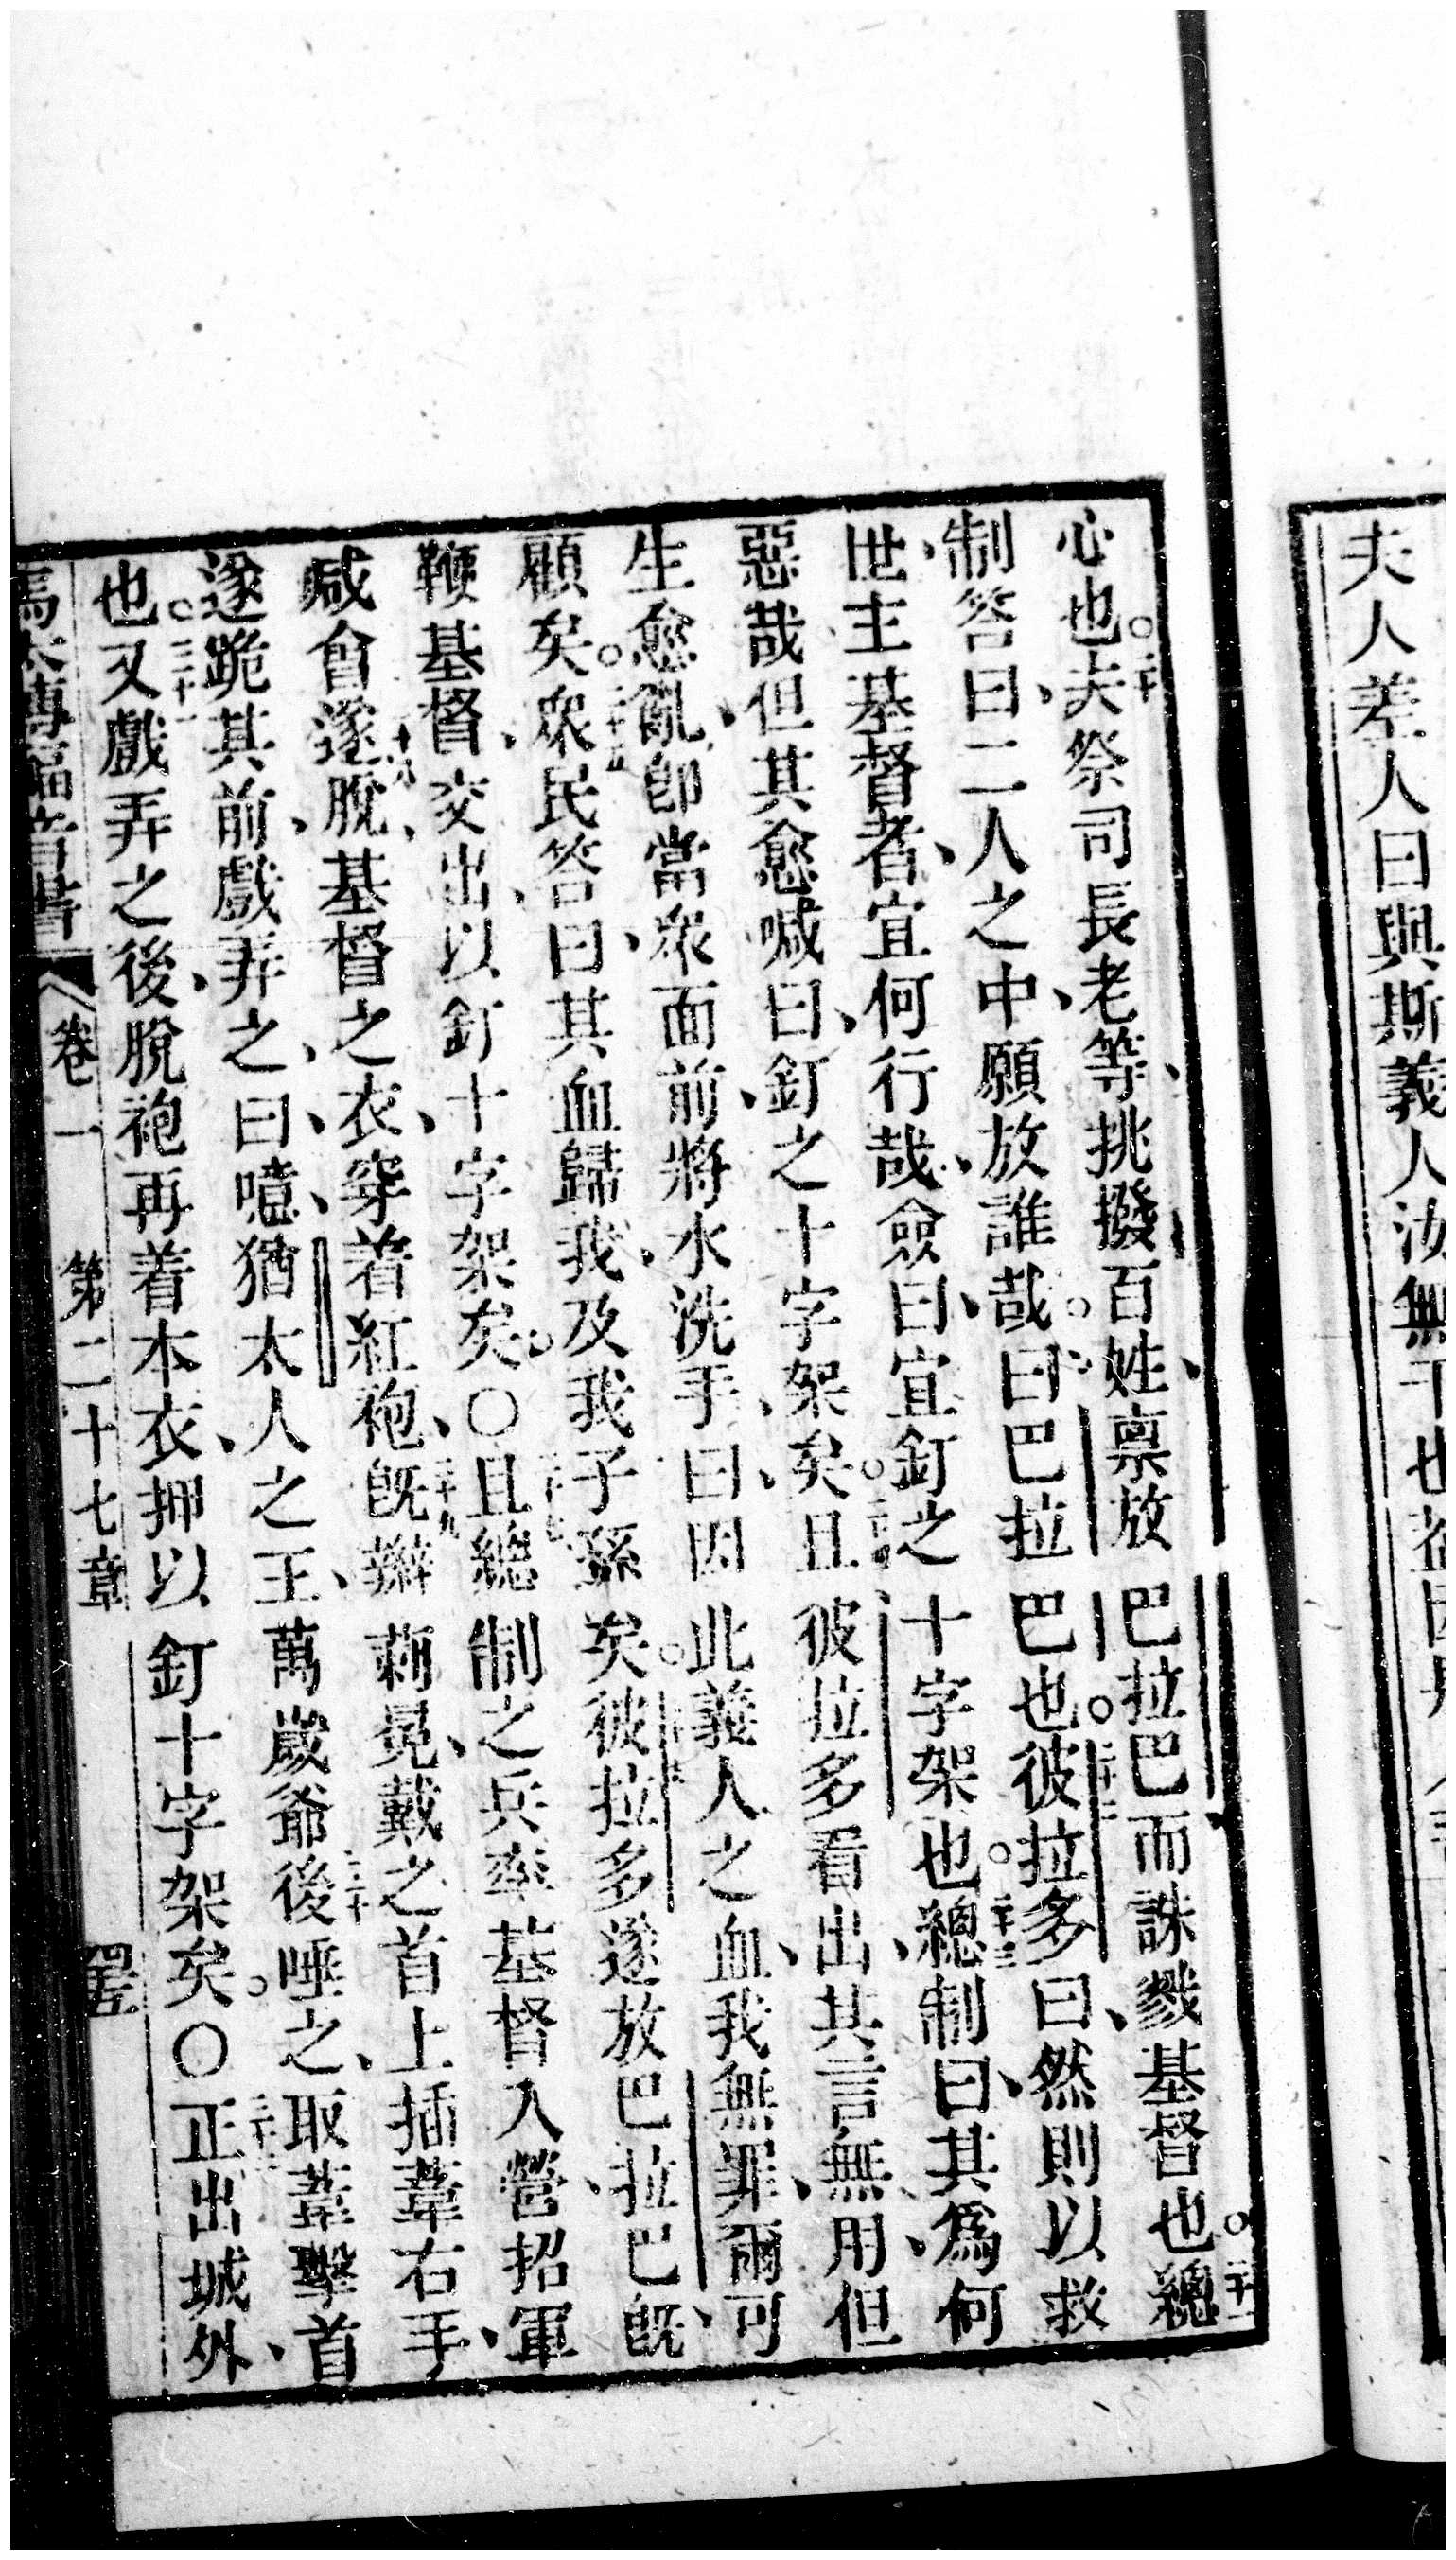 夫人差人曰與斯義人汝無干也
心也。二十夫祭司長老等、挑撥百姓、禀放巴拉巴而誅戮基督也。二十一總
制答曰、二人之中、願放誰哉。曰巴拉巴也。二十二彼拉多曰、然則以救
世主基督者、宜何行哉、僉曰、宜釘之十字架也。二十三總制曰、其爲何
惡哉、但其愈喊曰、釘之十字架矣。二十四且彼拉多看出、其言無用、但
生愈亂、卽當衆面前、將水洗手、曰、因此義人之血、我無罪、爾可
顧矣。二十五衆民答曰、其血歸我、及我子孫矣。二十六彼拉多遂放巴拉巴、旣
鞭基督、交出、以釘十字架矣。〇二十七且總制之兵、率基督入營、招軍
咸會、二十八遂脫基督之衣、穿着紅袍、二十九旣辮蕀冕、戴之首上、插葦右手、
遂跪其前、戲弄之、曰、噫、猶太人之王、萬歲爺、三十後唾之、取葦擊首
也。三十一又戲弄之後、脫袍再着本衣、押以釘十字架矣。〇三十二正出城外、
馬太傳福音書 卷一 第二十七章 四五